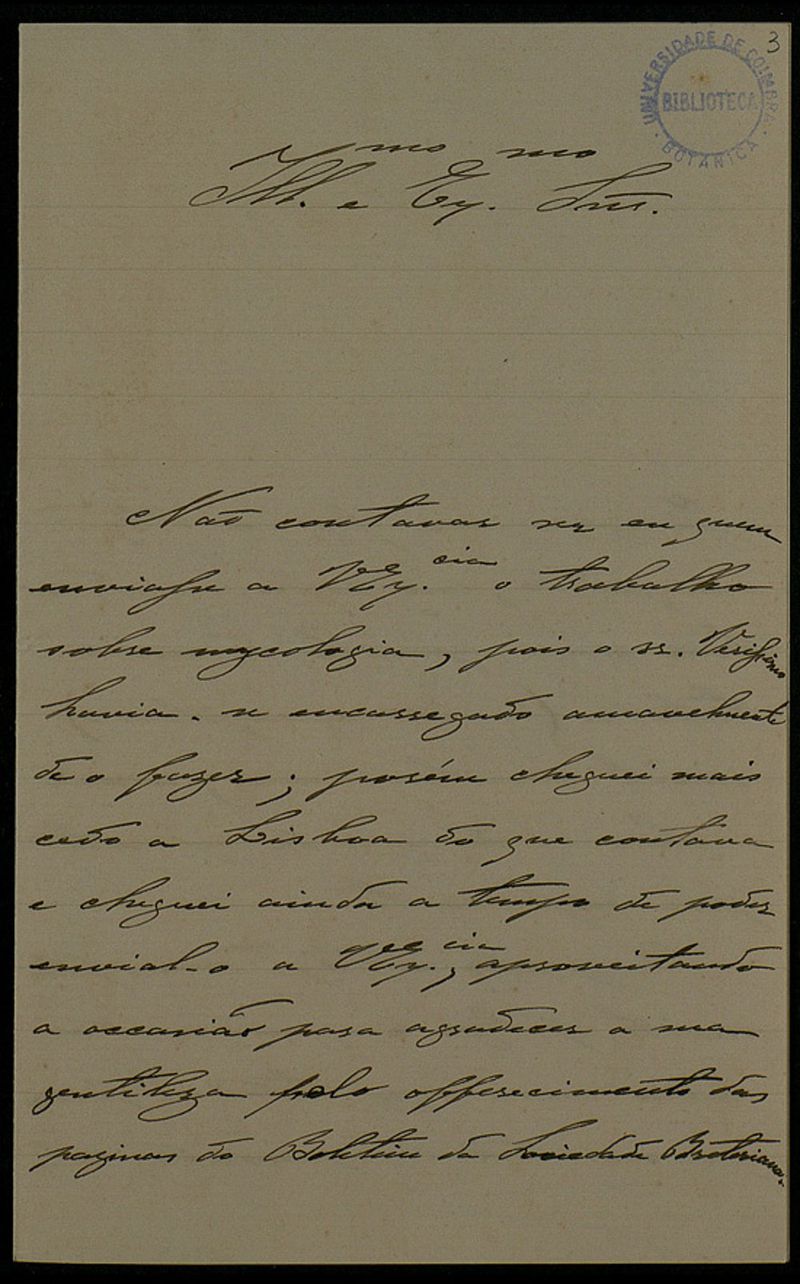 3
UNIVERSIDADE DE COIMBRA
BIBLIOTECA
BOTANICA
Ill.mo e Ex.mo Snr.
Não contava ser eu quem
enviasse a V Ex.cia o trabalho
sobre mycologia, pois o sr. Verissimo
havia-se encarregado amavelmente
de o fazer; porém cheguei mais
cedo a Lisboa do que contava
e cheguei ainda a tempo de poder
envial-o a V Ex.cia, aproveitando
a occasião para agradecer a sua
gentileza pelo offerecimento das
paginas do Boletim da Sociedade Broteriana.